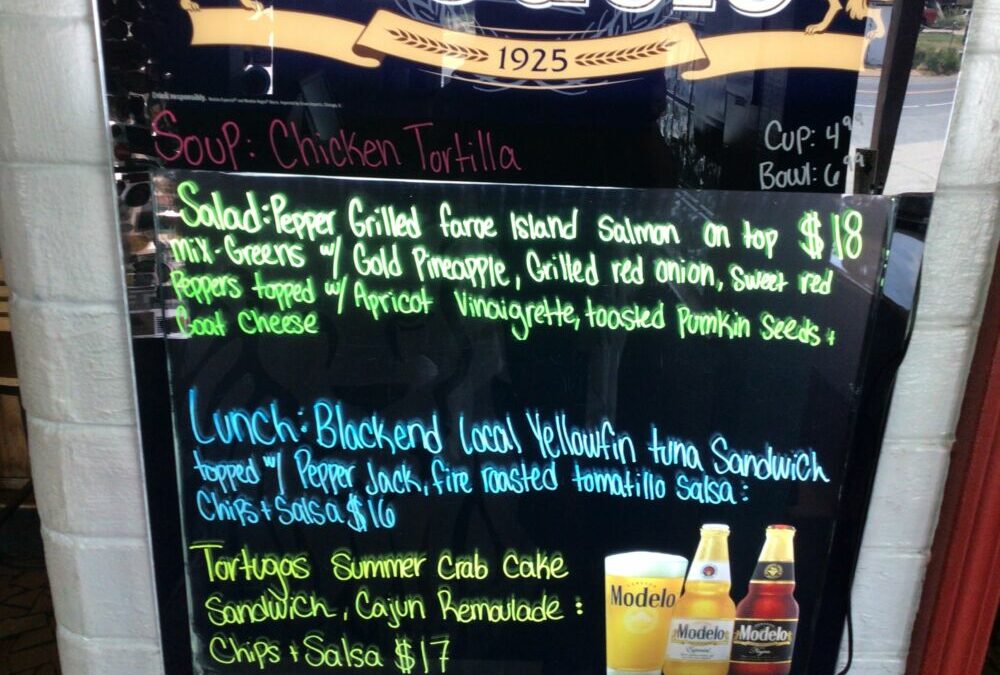 1925
Soup: Chicken Tortilla
Cup: 4⁹⁹
Bowl: 6⁹⁹
Salad: Pepper Grilled faroe Island Salmon on top $18
mix-Greens w/ Gold Pineapple, Grilled red onion, sweet red
Peppers topped w/ Apricot Vinaigrette, toasted Pumkin Seeds +
Goat Cheese
Lunch: Blackend local Yellowfin tuna Sandwich
topped w/ Pepper Jack, fire roasted tomatillo Salsa:
Chips + Salsa $16
Tortugas Summer Crab Cake
Sandwich, Cajun Remoulade:
Chips + Salsa $17
Modelo
Modelo
Especial
Modelo
Negra